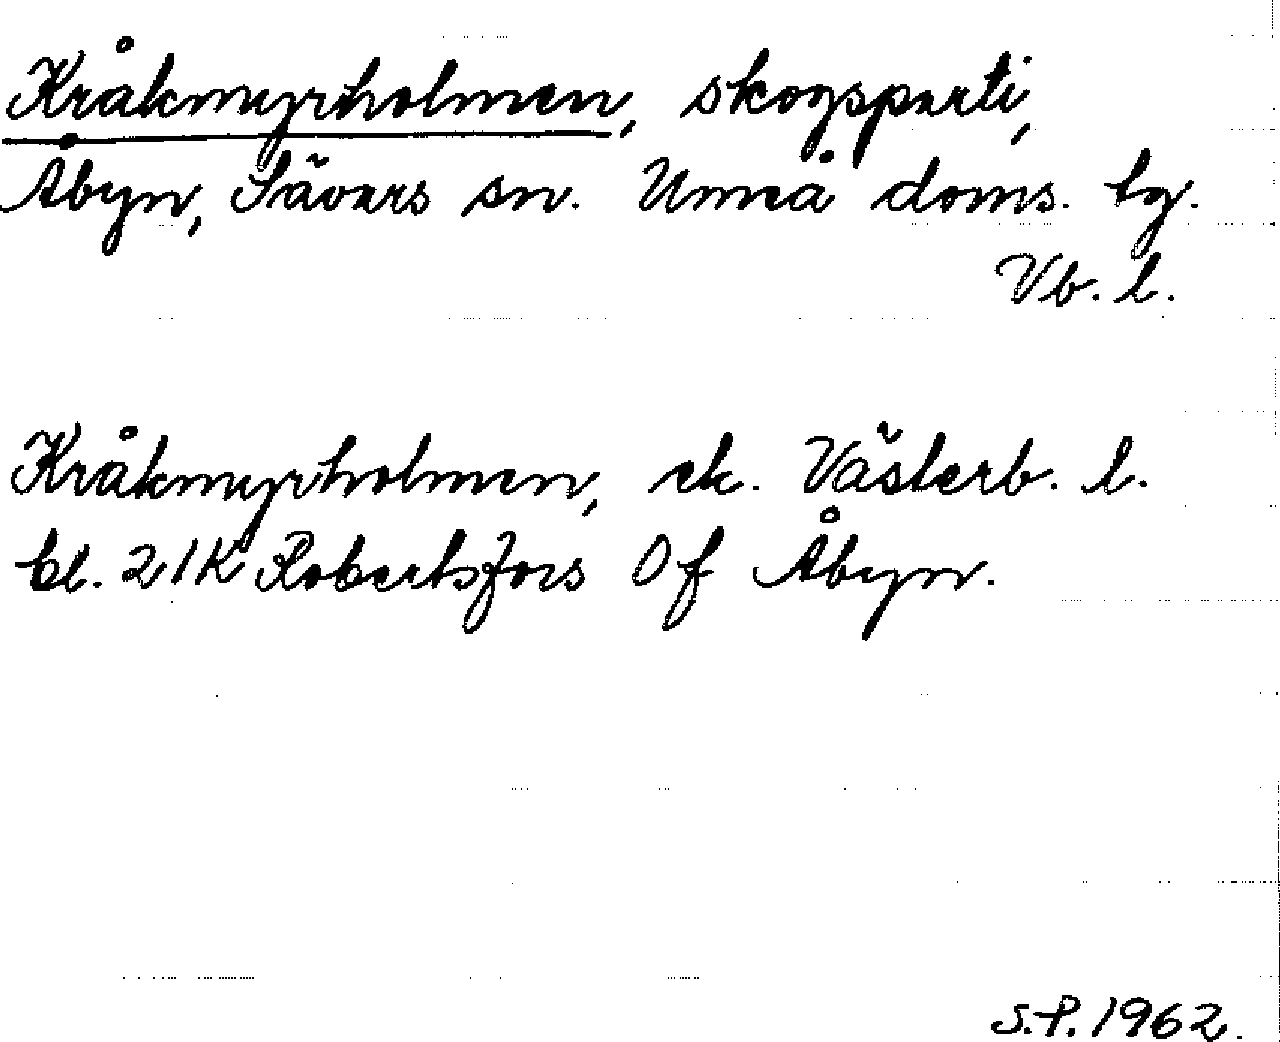 Kråkmyrholmen, skogsparti,
Åbyn, Sävars sn. Umeå doms. tg.
Vb. l.
Kråkmyrholmen, ek. Västerb. l.
bl. 21K Robertsfors 0f Åbyn.
S.P. 1962.